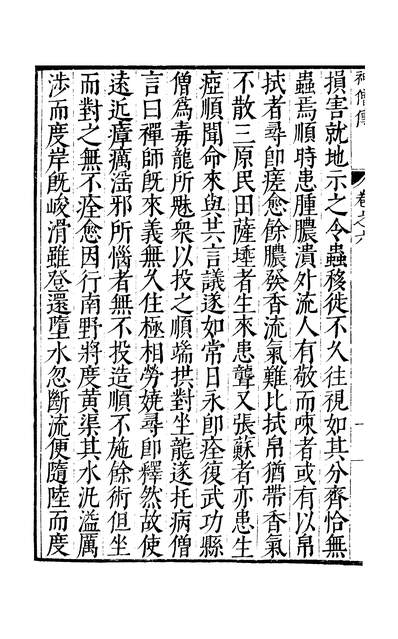 神僧傳 卷之六
損害就地示之令蟲移徙不久往視如其分齊恰無
蟲焉順時患腫膿潰外流人有敬而𠲿者或有以帛
拭者尋卽瘥愈餘膿發香流氣難比拭帛猶帶香氣
不散三原民田薩埵者生來患聾又張蘇者亦患生
瘂順聞命來與其言議遂如常日永卽痊復武功縣
僧爲毒龍所魅衆以投之順端拱對坐龍遂托病僧
言曰禪師旣來義無久住極相勞嬈尋卽釋然故使
遠近瘴癘滛邪所惱者無不投造順不施餘術但坐
而對之無不痊愈因行南野將度黃渠其水汎溢厲
涉而度岸旣峻滑雖登還墮水忽斷流便隨陸而度